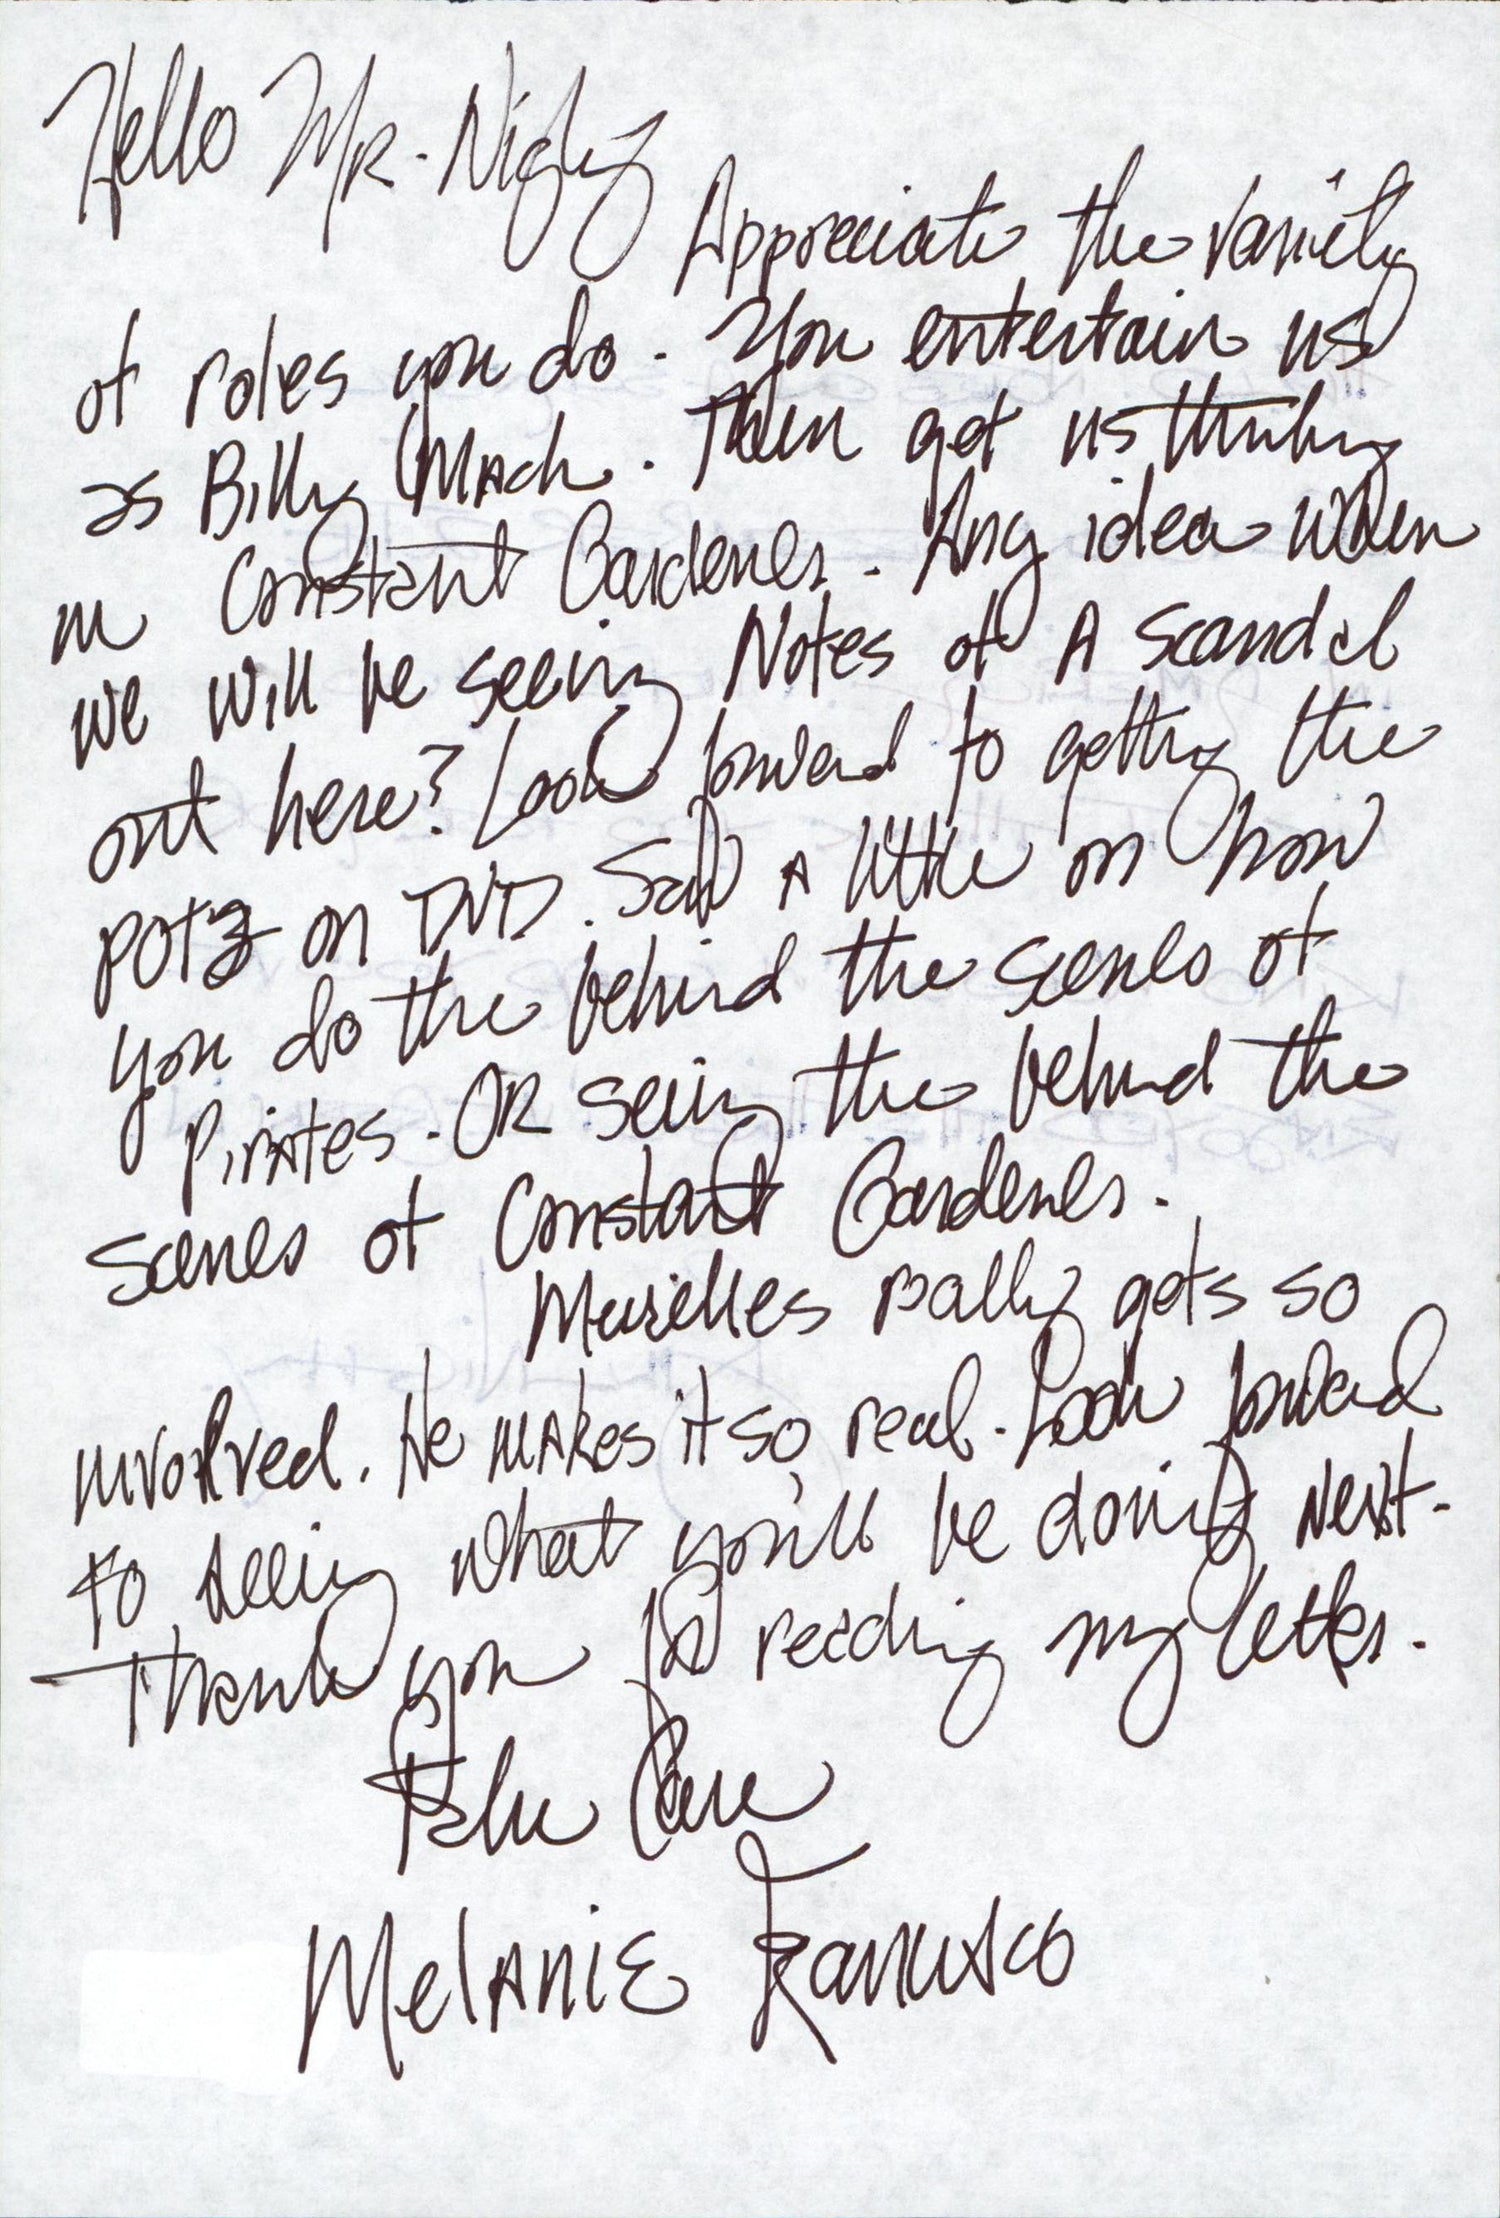 Hello MR. Nighy
Appreciate the variety
of roles you do. You entertain us
as Billy Mack. Then get us thinking
in Constant Gardener. Any idea when
we will be seeing Notes of A Scandal
out here? Look forward to getting the
POTC on DVD. Saw A little on how
you do the behind the scenes of
Pirates. OR seeing the behind the
scenes of Constant Gardener.
really gets so
involved. He makes it so real. Look forward
to seeing what you'll be doing next.
Thank you for reading my letter.
Take Care
Melanie